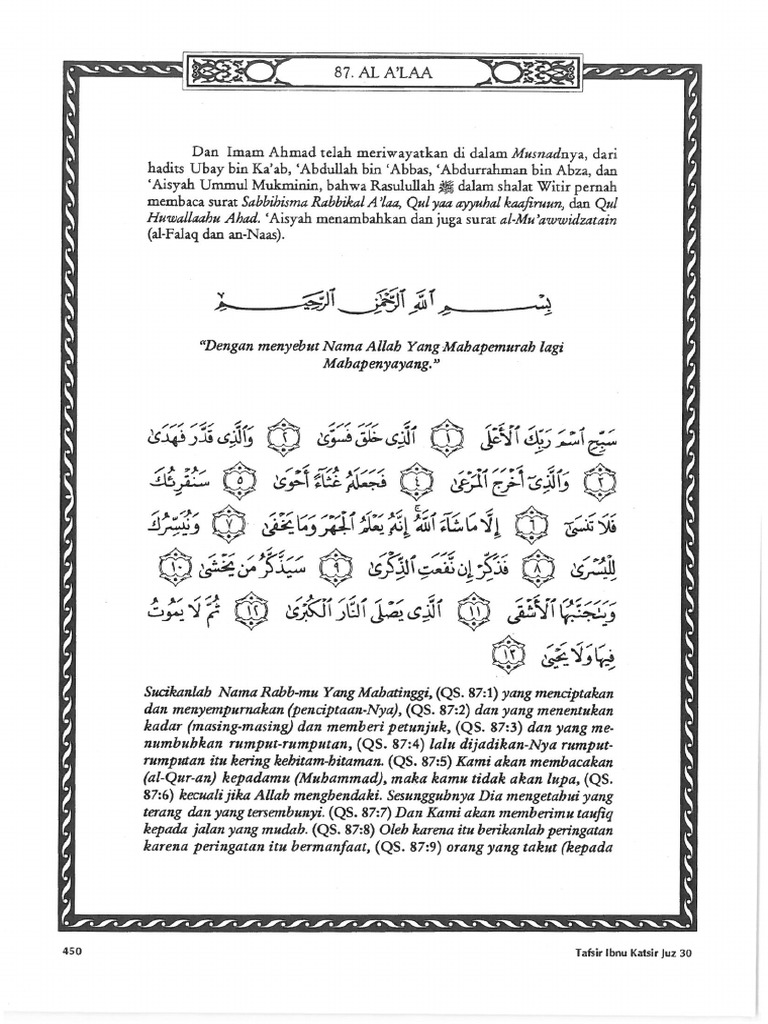 87. AL A'LAA
Dan Imam Ahmad telah meriwayatkan di dalam Musnadnya, dari
hadits Ubay bin Ka'ab, 'Abdullah bin 'Abbas, 'Abdurrahman bin Abza, dan
'Aisyah Ummul Mukminin, bahwa Rasulullah ﷺ dalam shalat Witir pernah
membaca surat Sabbihisma Rabbikal A'laa, Qul yaa ayyuhal kaafiruun, dan Qul
Huwallaahu Ahad. 'Aisyah menambahkan dan juga surat al-Mu'awwidzatain
(al-Falaq dan an-Naas).
بِسْمِ ٱللَّهِ ٱلرَّحْمَٰنِ ٱلرَّحِيمِ
“Dengan menyebut Nama Allah Yang Mahapemurah lagi
Mahapenyayang.”
سَبِّحِ ٱسْمَ رَبِّكَ ٱلْأَعْلَى ١ ٱلَّذِى خَلَقَ فَسَوَّىٰ ٢ وَٱلَّذِى قَدَّرَ فَهَدَىٰ
٣ وَٱلَّذِىٓ أَخْرَجَ ٱلْمَرْعَىٰ ٤ فَجَعَلَهُۥ غُثَآءً أَحْوَىٰ ٥ سَنُقْرِئُكَ
فَلَا تَنسَىٰٓ ٦ إِلَّا مَا شَآءَ ٱللَّهُ ۚ إِنَّهُۥ يَعْلَمُ ٱلْجَهْرَ وَمَا يَخْفَىٰ ٧ وَنُيَسِّرُكَ
لِلْيُسْرَىٰ ٨ فَذَكِّرْ إِن نَّفَعَتِ ٱلذِّكْرَىٰ ٩ سَيَذَّكَّرُ مَن يَخْشَىٰ ١٠
وَيَتَجَنَّبُهَا ٱلْأَشْقَى ١١ ٱلَّذِى يَصْلَى ٱلنَّارَ ٱلْكُبْرَىٰ ١٢ ثُمَّ لَا يَمُوتُ
فِيهَا وَلَا يَحْيَىٰ ١٣
Sucikanlah Nama Rabb-mu Yang Mahatinggi, (QS. 87:1) yang menciptakan
dan menyempurnakan (penciptaan-Nya), (QS. 87:2) dan yang menentukan
kadar (masing-masing) dan memberi petunjuk, (QS. 87:3) dan yang me-
numbuhkan rumput-rumputan, (QS. 87:4) lalu dijadikan-Nya rumput-
rumputan itu kering kehitam-hitaman. (QS. 87:5) Kami akan membacakan
(al-Qur-an) kepadamu (Muhammad), maka kamu tidak akan lupa, (QS.
87:6) kecuali jika Allah menghendaki. Sesungguhnya Dia mengetahui yang
terang dan yang tersembunyi. (QS. 87:7) Dan Kami akan memberimu taufiq
kepada jalan yang mudah. (QS. 87:8) Oleh karena itu berikanlah peringatan
karena peringatan itu bermanfaat, (QS. 87:9) orang yang takut (kepada
450
Tafsir Ibnu Katsir Juz 30